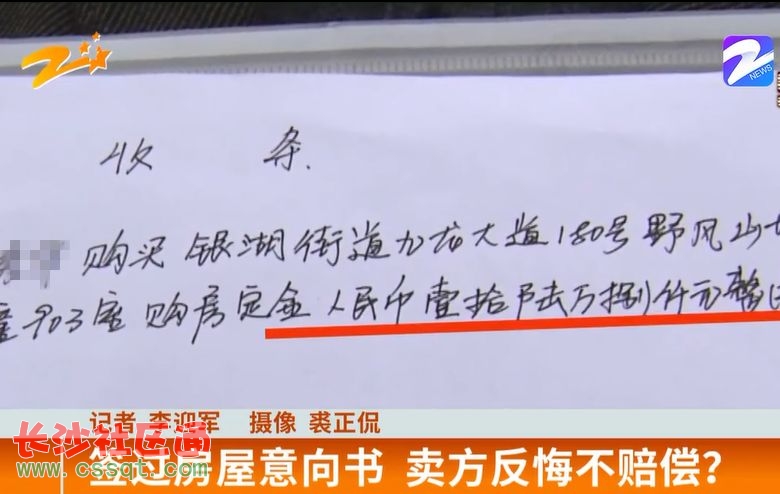 Z
NEWS
收 条
购买 银湖街道九龙大道180号野风山
幢903室 购房定金 人民币壹拾陆万捌仟元整
记者 李迎军 摄像 裘正侃
签过房屋意向书 卖方反悔不赔偿?
长沙社区通
www.cssqt.com